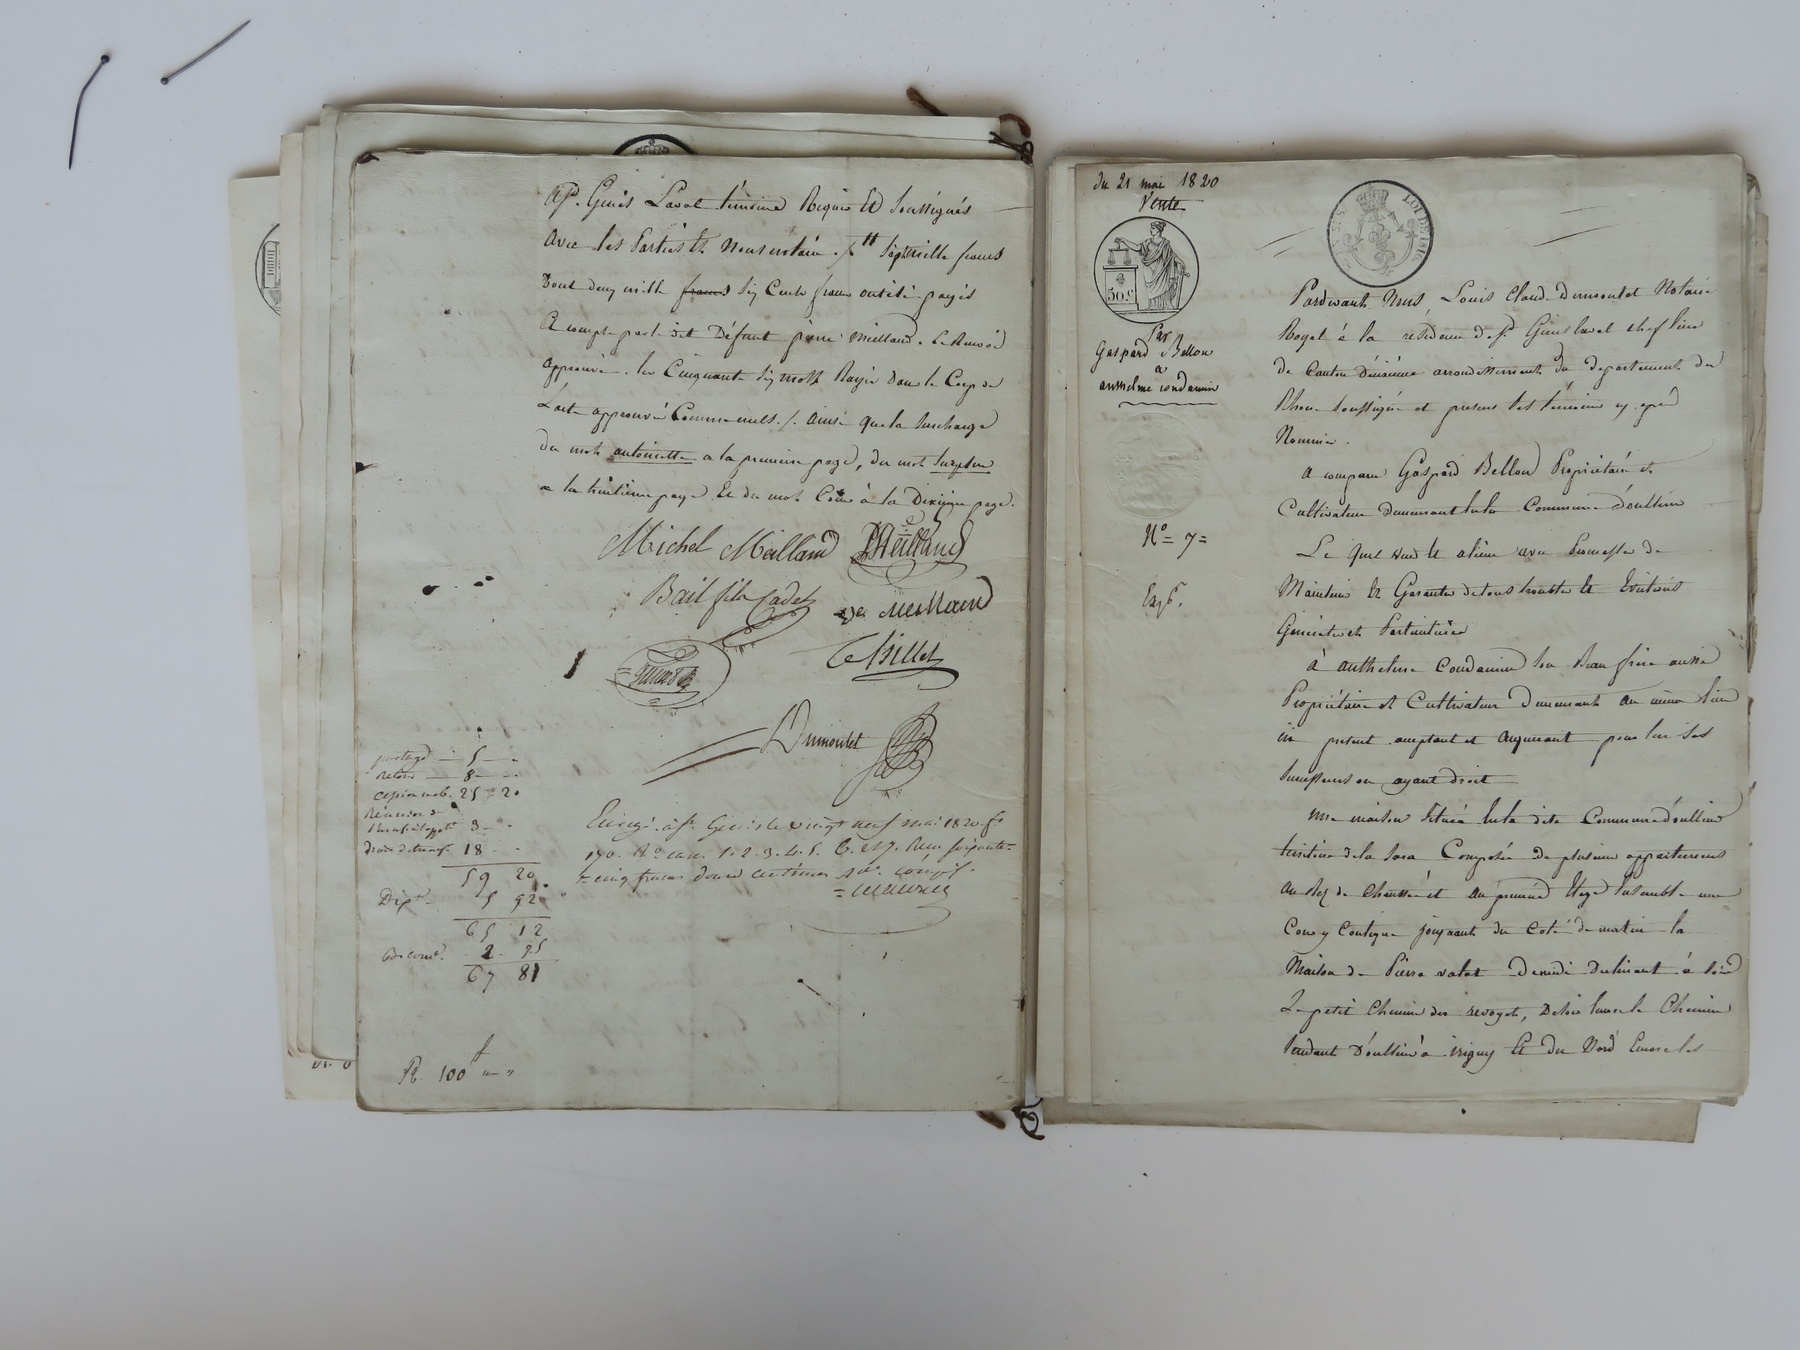 à St. Genis Laval témoins Requis et Soussignés
avec les Parties et Nous notaire ./. tt Sept mille francs
Dont deux mille francs six Cents francs ont été payés
à compte par le dit Défunt pierre meilland. Le Renvoi
approuvé. les Cinquante six mots Rayés Dans le Corps de
L'acte approuvés Comme nuls ./. ainsi que la surcharge
du mot antoinette a la premiere page, du mot
a la huitieme page et du mot à la Dixieme page.
Michel Meilland Meilland
Bail fils Cadet meilland
Chillet
Dumontet
partage — 5 — -
retour — 8 — -
cession mob. 25 - 20
Réunion d'
usufruit 3 - -
droit de transp. 18 - -
59 20
Dixme 5 92
65 12
2 75
67 81
Enregé. à St. Genis le vingt neuf mai 1820 fo
170. Ro cases 1. 2. 3. 4. 5. 6. et 7. Reçu soixante
cinq francs douze centimes de. compris.
R. 100 f " "
du 21 mai 1820
Vente
50 c.
LOI DE 1816
Par
Gaspard Bellon
a
anthelme condamin
No = 7 =
Pardevant Nous Louis Claude Dumontet Notaire
Royal à la résidence de St. Genis laval chef lieu
de Canton Deuxième arrondissement du departement du
Rhone soussigné et presens les témoins cy après
Nommés.
a comparu Gaspard Bellon Propriétaire et
Cultivateur Demeurant en la Commune d'oullins
Le quel vend et aliène avec Promesse de
Maintenir et Garantir de tous troubles et Evictions
Généralement
à anthelme Condamin son Beau frère aussi
Propriétaire et Cultivateur Demeurant au même lieu
ici présent acceptant et acquerant pour lui ses
successeurs ou ayant droit
une maison Située en la dite Commune d'oullins
territoire de la Sara Composée de plusieurs appartemens
au Rez de Chaussée et au premier Etage Ensemble une
Cour y Contigue joignant du Coté de matin la
Maison de Pierre valot De midi
Le petit Chemin des revoyet, De soir Encore le Chemin
tendant D'oullins à irigny et du Nord Encore les